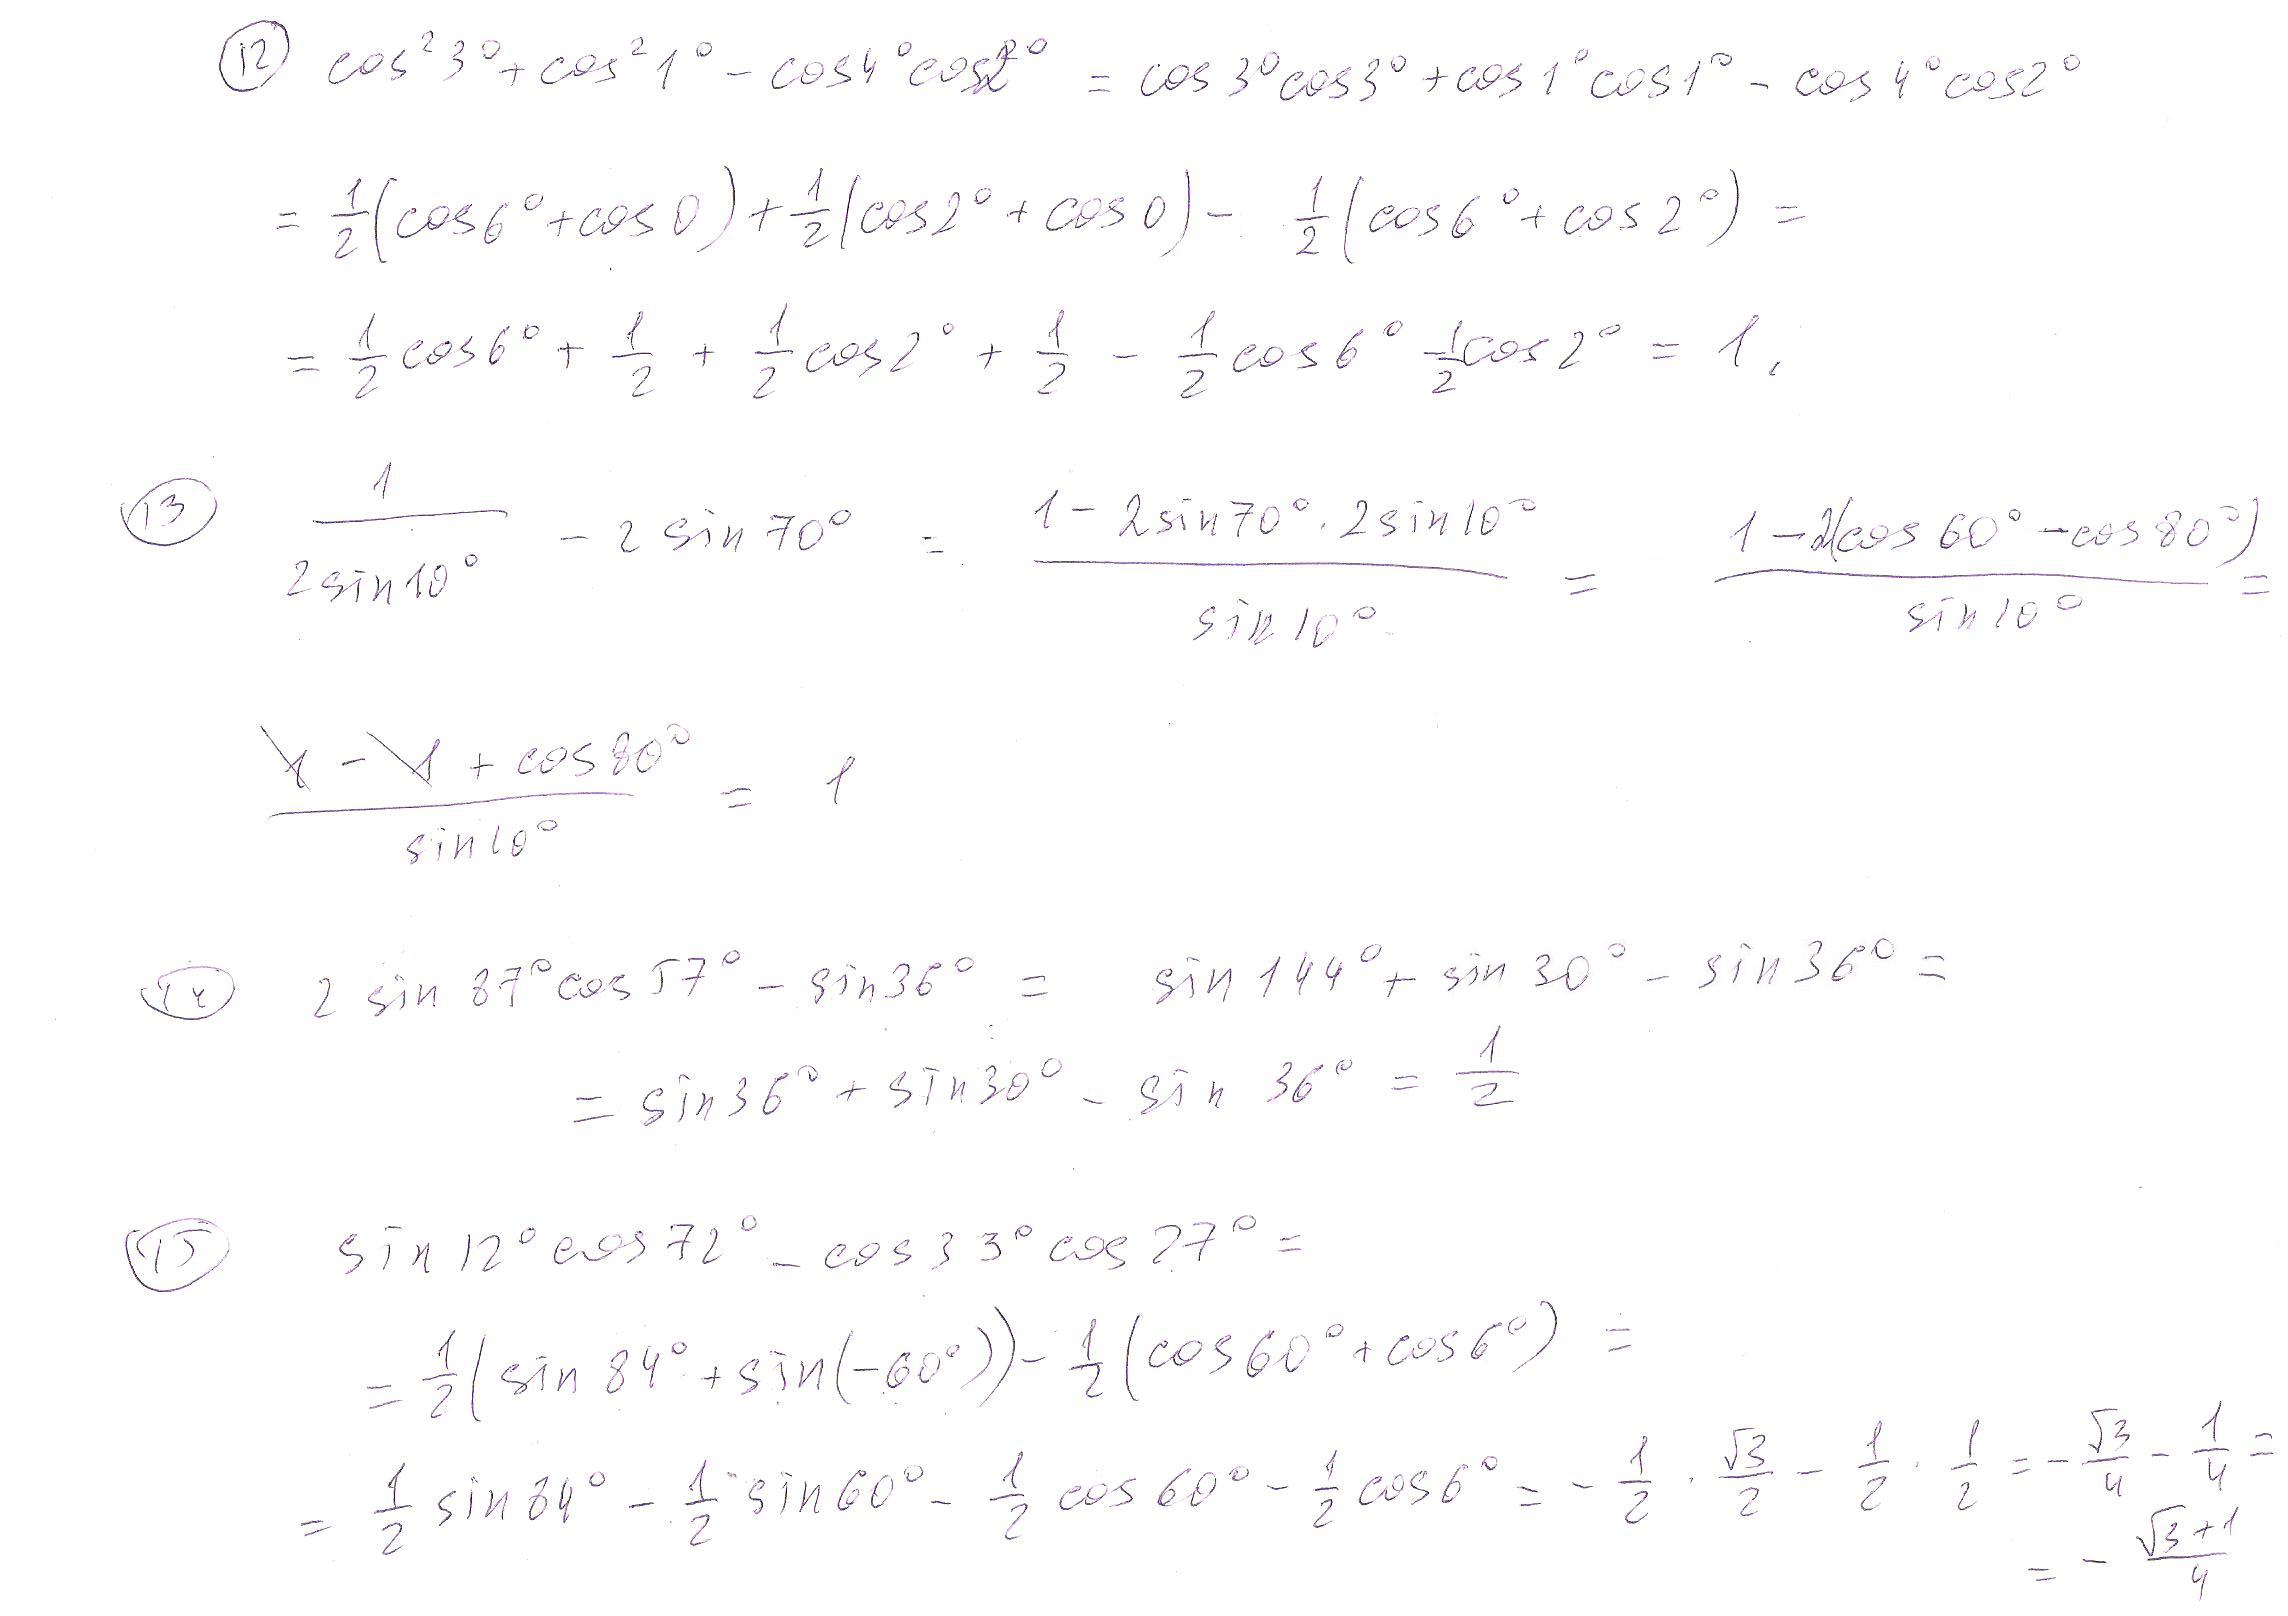 (12) cos²3° + cos²1° - cos4°cos2° = cos3°cos3° + cos1°cos1° - cos4°cos2°
= 1/2(cos6° + cos0) + 1/2(cos2° + cos0) - 1/2(cos6° + cos2°) =
= 1/2 cos6° + 1/2 + 1/2 cos2° + 1/2 - 1/2 cos6° - 1/2 cos2° = 1.
(13) 1/(2sin10°) - 2sin70° = (1 - 2sin70°·2sin10°)/(sin10°) = (1 - 2(cos60° - cos80°))/(sin10°) =
(1 - 1 + cos80°)/(sin10°) = 1
(14) 2 sin87°cos57° - sin36° = sin144° + sin30° - sin36° =
= sin36° + sin30° - sin36° = 1/2
(15) sin12°cos72° - cos33°cos27° =
= 1/2(sin84° + sin(-60°)) - 1/2(cos60° + cos6°) =
= 1/2 sin84° - 1/2 sin60° - 1/2 cos60° - 1/2 cos6° = - 1/2 · √3/2 - 1/2 · 1/2 = - √3/4 - 1/4 =
= - (√3+1)/4